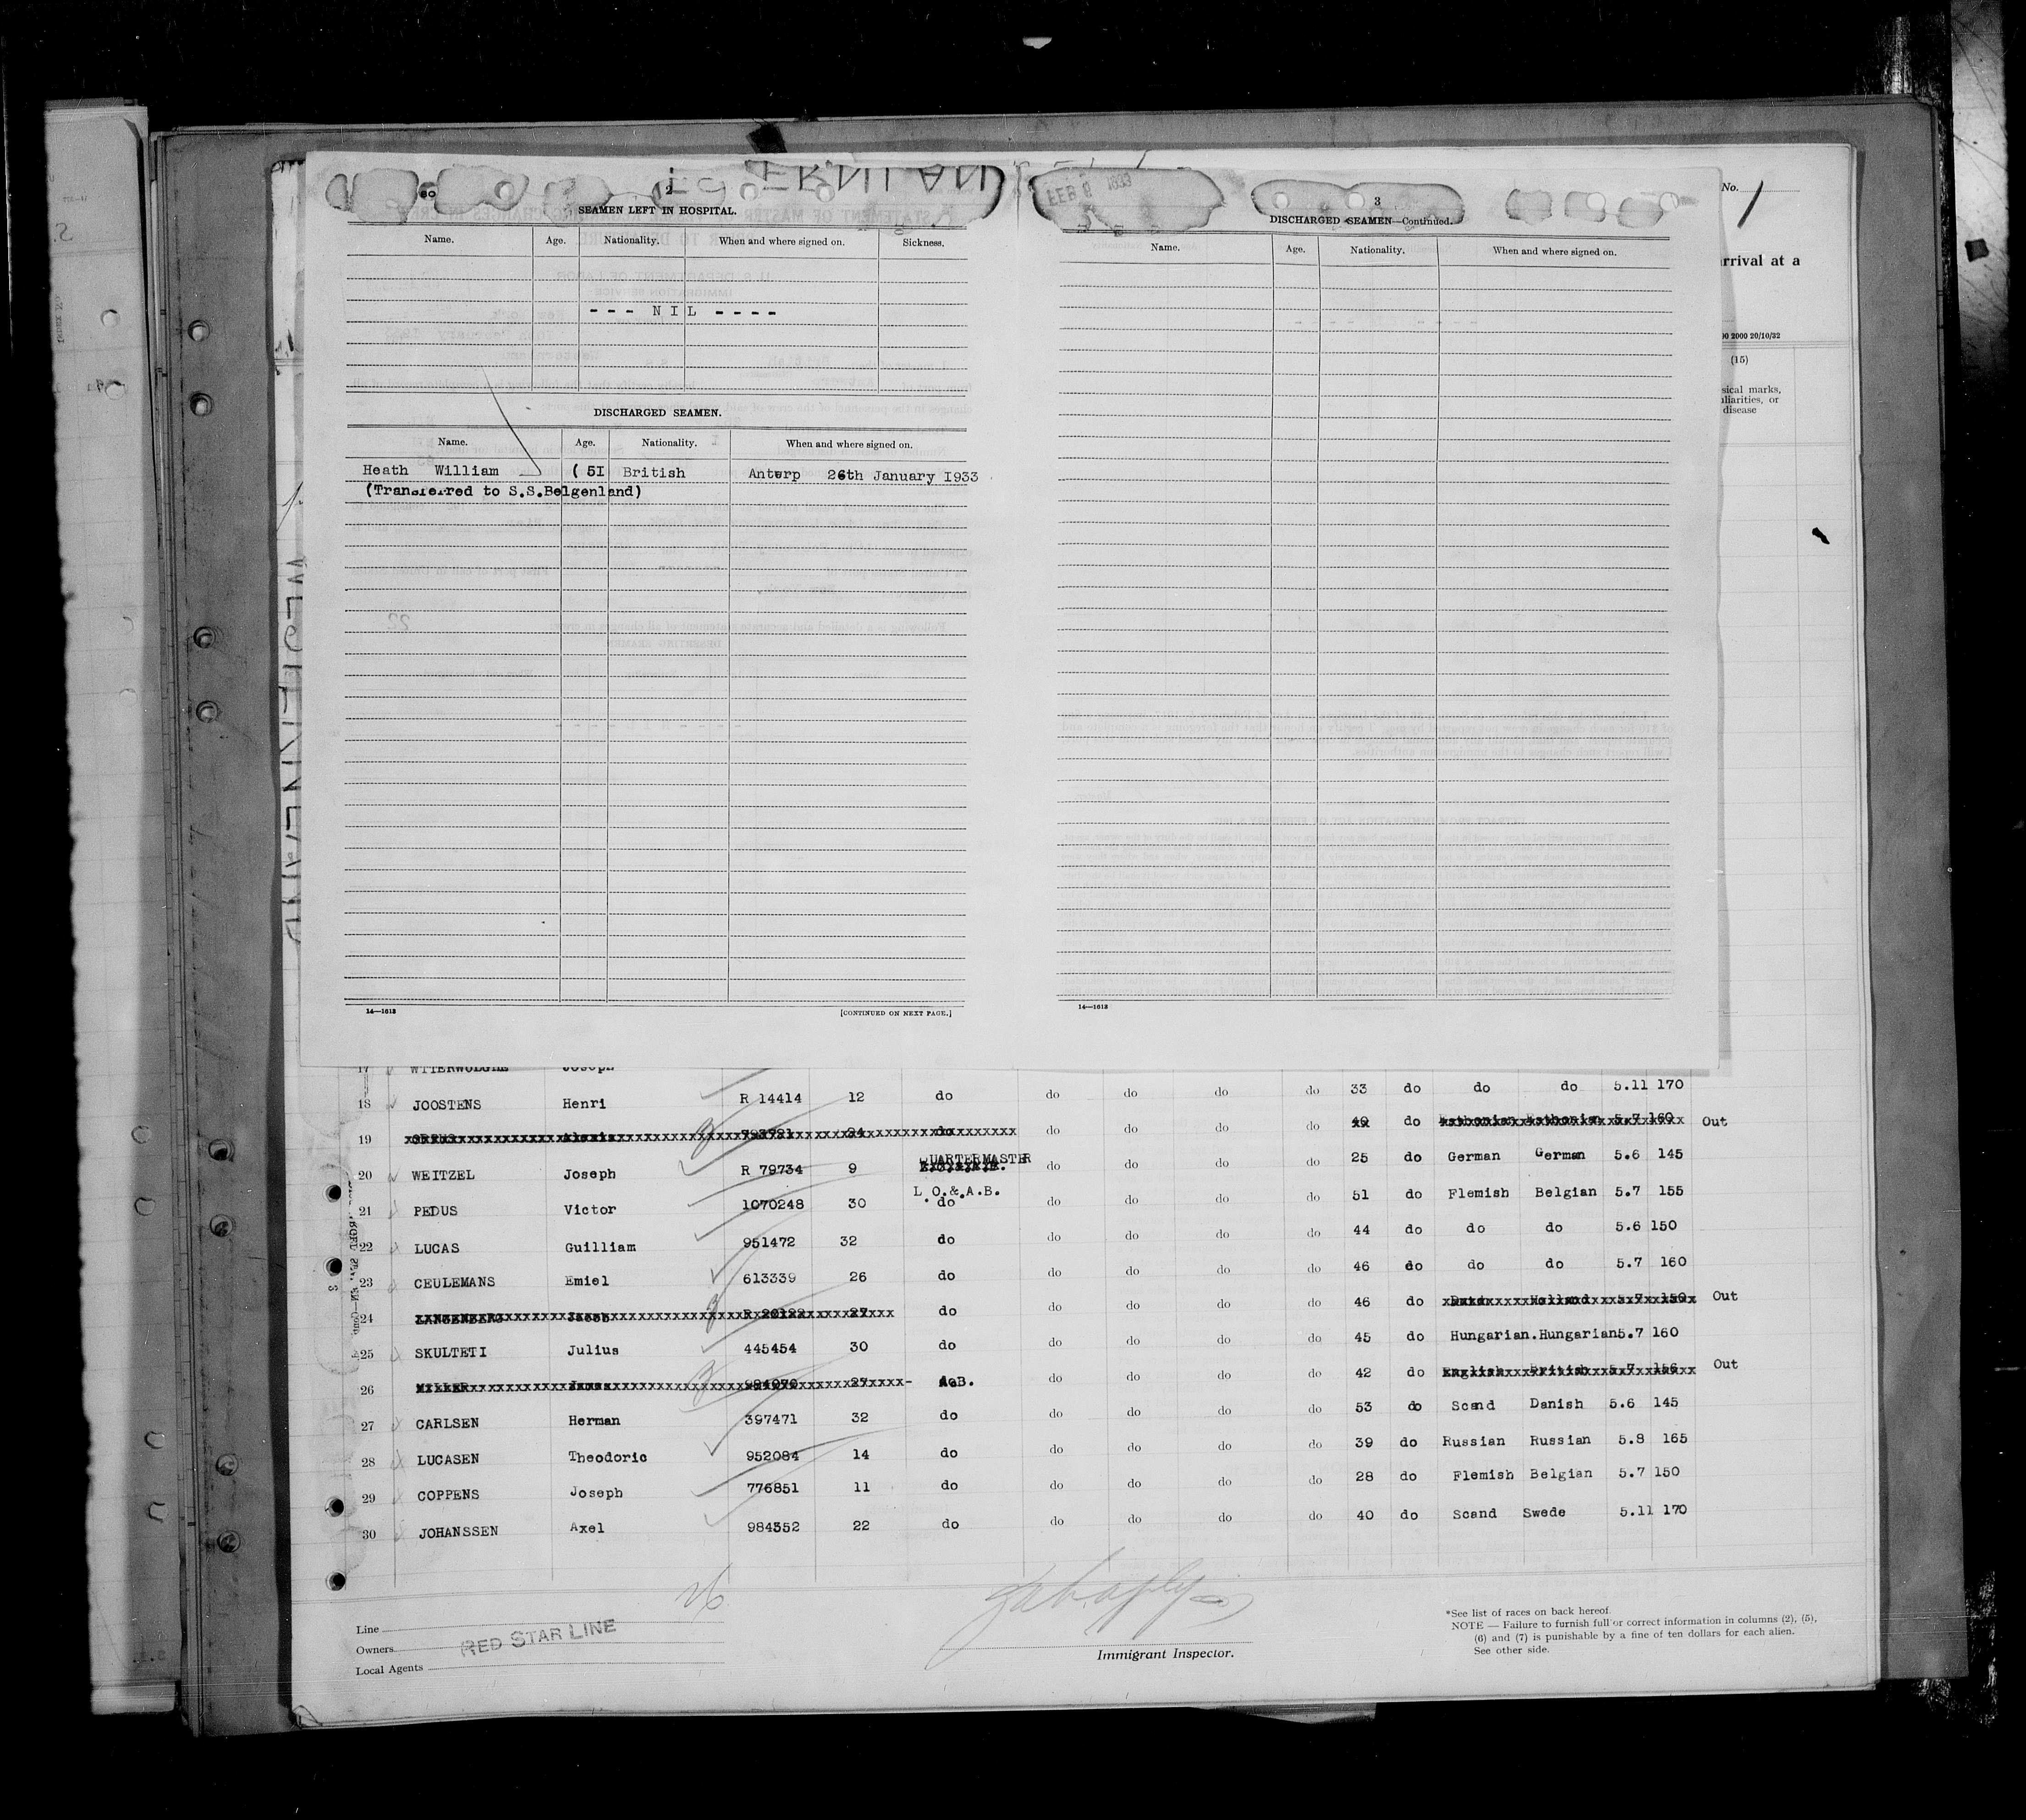 2
SEAMEN LEFT IN HOSPITAL.
Name. Age. Nationality. When and where signed on. Sickness.
--- NIL ----
DISCHARGED SEAMEN.
Name. Age. Nationality. When and where signed on.
Heath William (51 British Antwrp 26th January 1933
(Transferred to S.S.Belgenland)
14—1613
[CONTINUED ON NEXT PAGE.]
FEB 9 1933
3
DISCHARGED SEAMEN—Continued.
Name. Age. Nationality. When and where signed on.
14—1613
No. 1
rrival at a
2000 20/10/32
(15)
sical marks,
uliarities, or
disease
17 Joseph
18 JOOSTENS Henri R 14414 12 do do do do do 33 do do do 5.11 170
19 Alexis 793721 24 do do do do do 49 do Esthonian Esthonian 5.7 160 Out
20 WEITZEL Joseph R 79734 9 QUARTERMASTER do do do do 25 do German German 5.6 145
L.O.&.A.B.
21 PEDUS Victor 1070248 30 do do do do do 51 do Flemish Belgian 5.7 155
22 LUCAS Guilliam 951472 32 do do do do do 44 do do do 5.6 150
23 CEULEMANS Emiel 613339 26 do do do do do 46 do do do 5.7 160
24 LANGENBERG Jacob R 20122 27 do do do do do 46 do Dutch Holland 5.7 150 Out
25 SKULTETI Julius 445454 30 do do do do do 45 do Hungarian.Hungarian5.7 160
26 MILLER James 984070 27 A.B. do do do do 42 do English British 5.7 156 Out
27 CARLSEN Herman 397471 32 do do do do do 53 do Scand Danish 5.6 145
28 LUCASEN Theodoric 952084 14 do do do do do 39 do Russian Russian 5.8 165
29 COPPENS Joseph 776851 11 do do do do do 28 do Flemish Belgian 5.7 150
30 JOHANSSEN Axel 984352 22 do do do do do 40 do Scand Swede 5.11 170
26
Line
Owners RED STAR LINE
Local Agents
Immigrant Inspector.
*See list of races on back hereof.
NOTE — Failure to furnish full or correct information in columns (2), (5),
(6) and (7) is punishable by a fine of ten dollars for each alien.
See other side.
WESTERNLAND